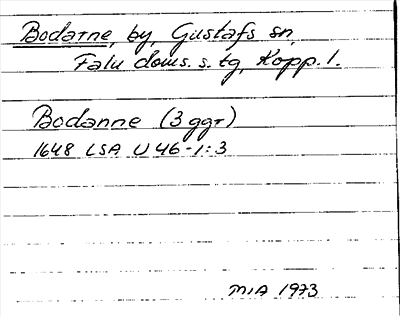 Bodarne, by, Gustafs sn,
Falu doms. s. tg, Kopp. l.
Bodanne (3 ggr)
1648 LSA U 46-1:3
MIA 1973